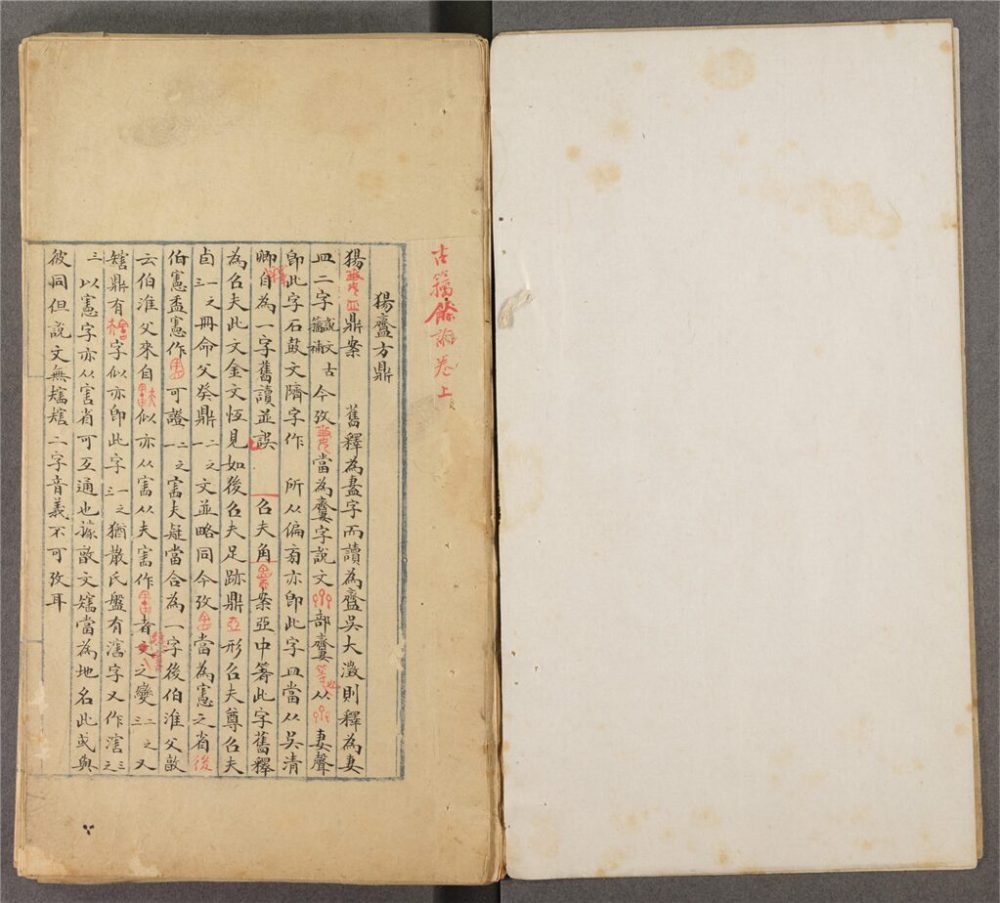 古籀餘論卷上
揚齍方鼎
揚鼎案 舊釋為盡字而讀為齍吳大澂則釋為妻
皿二字說文古籀補今攷當為齎字說文部齎从妻聲
即此字石鼓文隮字作 所从偏旁亦即此字皿當从吳清
卿自為一字舊讀並誤 㠯夫角案亞中箸此字舊釋
為㠯夫此文金文恆見如後㠯夫足跡鼎亞形㠯夫尊㠯夫
卣一之三冊命父癸鼎二之一文並略同今攷當為憲之省後
伯憲盉憲作可證二之一害夫疑當合為一字後伯淮父敔
云伯淮父來自似亦从害从夫害作者之變二之三又
𩛥鼎有字似亦即此字一之三猶散氏盤有㵮字又作㵮三之
三以憲字亦从害省可互通也諒敔文當為地名此或與
彼同但說文無二字音義不可攷耳